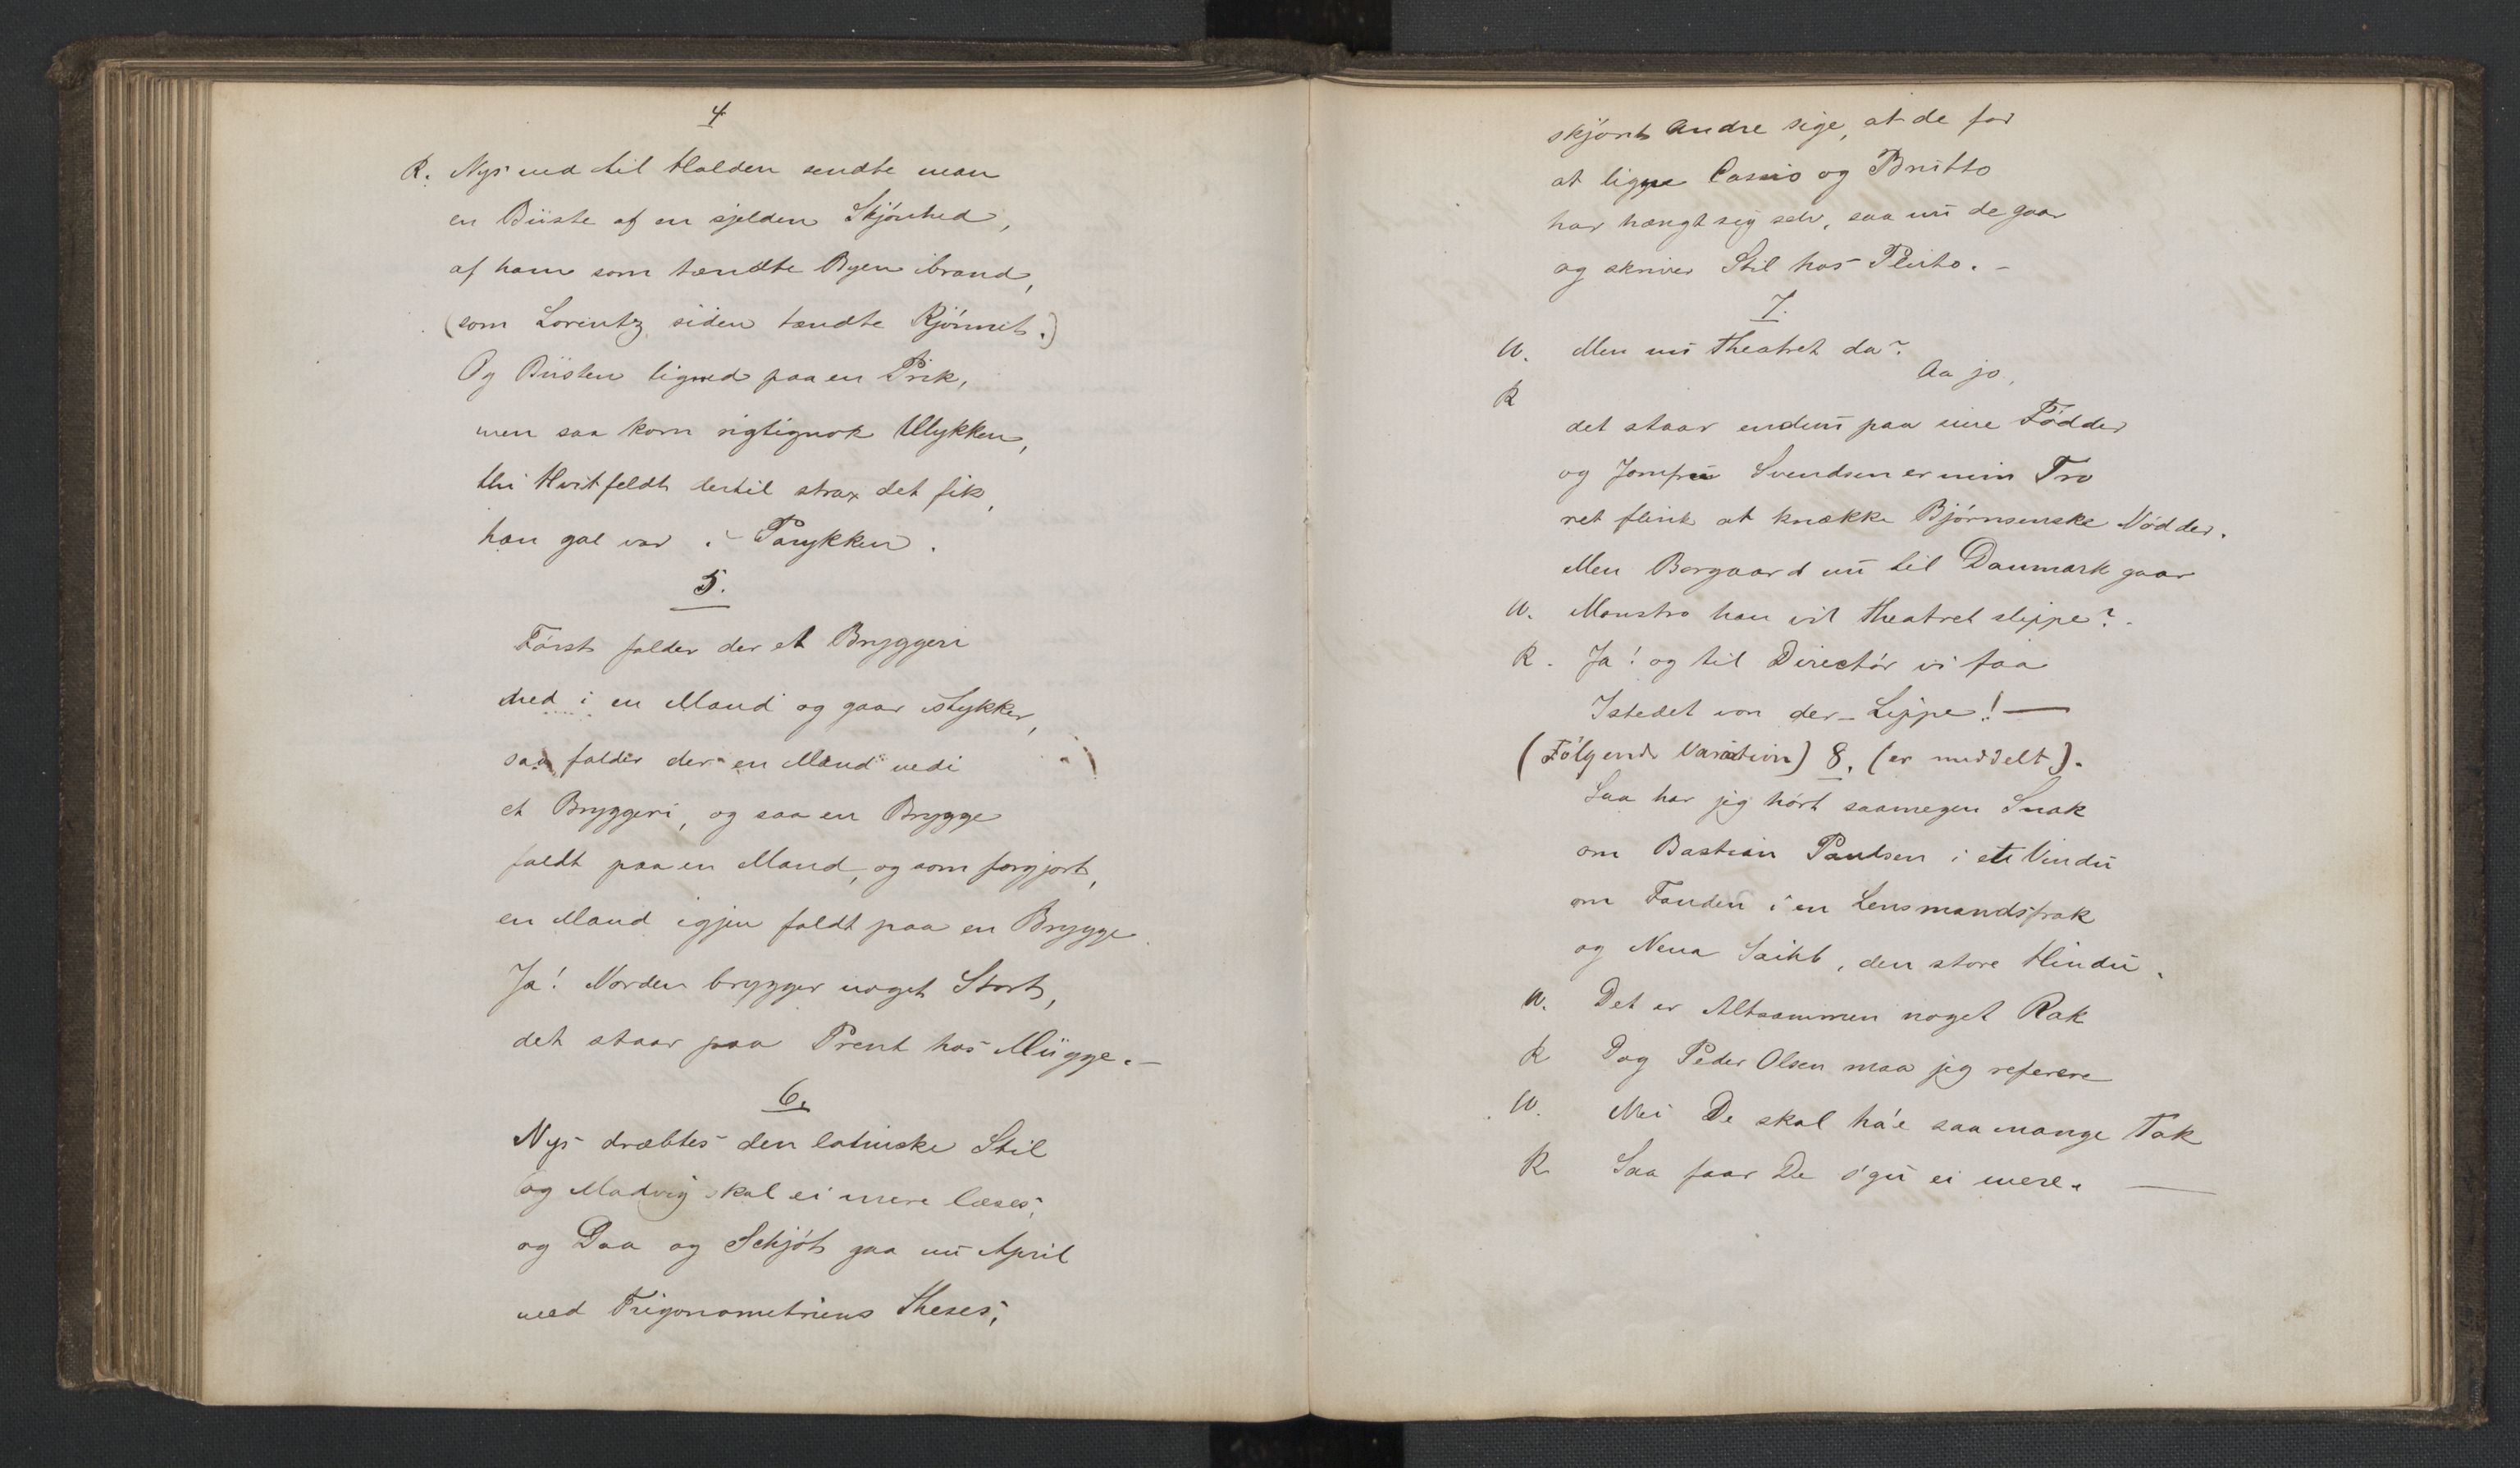 4
R. Nys ned til Halden sendte man
en Büste af en sjelden Skjönhed,
af ham som tændte Byen ibrand,
(som Lorentz siden tændte Kjönnet.)
Og Büsten ligned paa en Prik,
men saa kom rigtignok Ulykken,
thi Hvitfeldt dertil strax det fik,
han gal var i Parykken.
5.
Först falder der et Bryggeri
ned i en Mand og gaar istykker,
saa falder der en Mand nedi
et Bryggeri, og saa en Brygge
faldt paa en Mand, og som forgjort,
en Mand igjen faldt paa en Brygge.
Ja! Norden brygger noget Stort,
det staar paa Prent hos Mügge. —
6.
Nys dræbtes den latinske Stil
og Madvig skal ei mere læses,
og Daa og Schjöt gaa nu April
med Trigonometriens Theses,
skjönt Andre sige, at de for
at ligne Cassio og Brutto
har hængt sig selv, saa nu de gaar
og skriver Stil hos Pluto. —
7.
W. Men nu Theatret da?
R Aa jo,
det staar endnu paa sine Födder
og Jomfru Svendsen er min Tro
ret flink at knække Björnsenske Nödder.
Men Borgaard nu til Danmark gaar
W. Monstro han vil Theatret slippe? —
R. Ja! og til Directör vi faa
Istedet von der Lippe! —
(Fölgende Variation) 8. (er meddelt).
Saa har jeg hört saamegen Snak
om Bastian Paulsen i et Vindu
om Fanden i en Lensmandsfrak
og Nena Saihb, den store Hindu.
W. Det er Altsammen noget Rak
R Dog Peder Olsen maa jeg referere
W. Nei De skal ha'e saa mange Tak
R Saa faar De s'gu ei mere. —